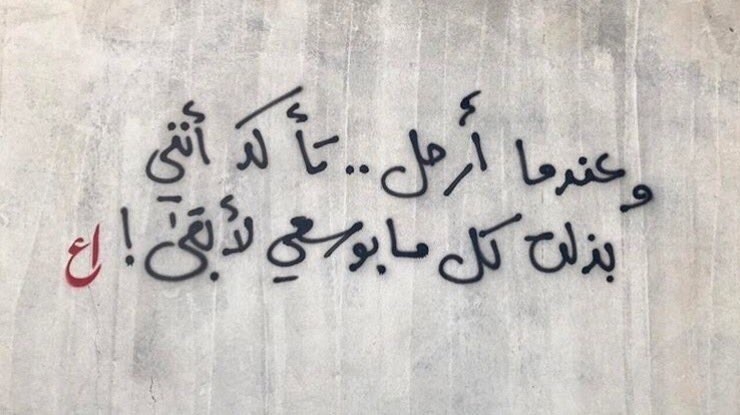 وعندما أرحل .. تأكد أنني
بذلت كل مابوسعي لأبقىٰ !
اع